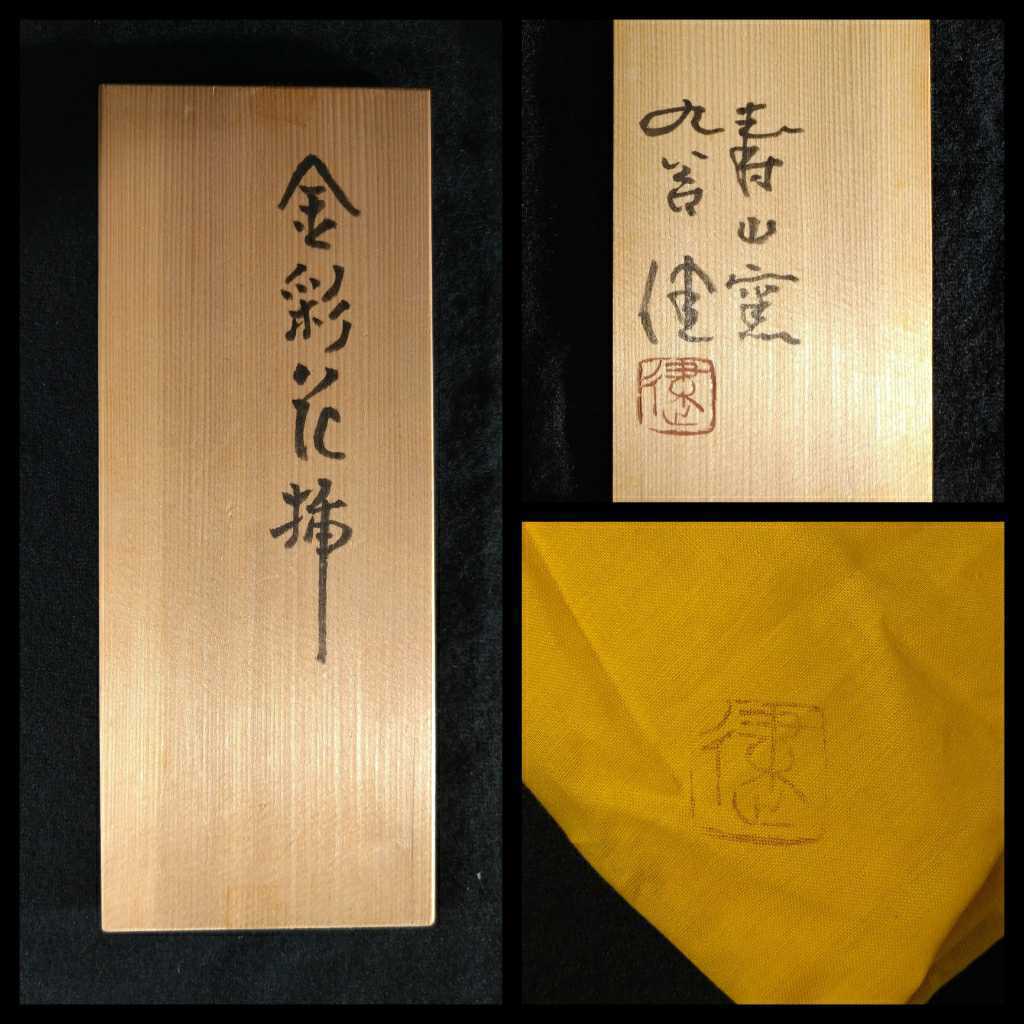 金彩花挿
寿山窯
九谷 健
健
健